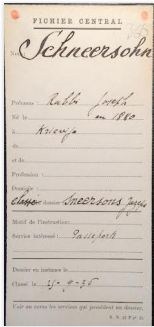 FICHIER CENTRAL
Nom Schneersohn
Prénoms : Rabbi Joseph
Né le en 1880
à
et de
et de
Profession :
Domicile :
classe dossier Sneersons
Motif de l'instruction:
Service intéressé : Passeport
Dossier en instance le
Classé le
Voir au verso les services qui possèdent un dossier.